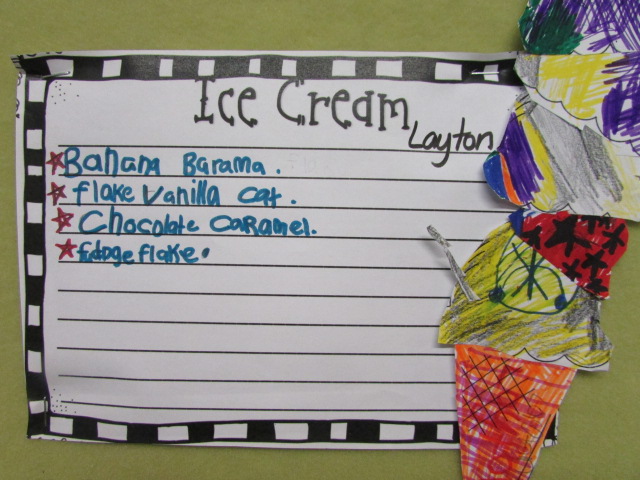 Ice Cream
Layton
Banana Barama.
flake Vanilla Cat.
Chocolate Caramel.
fudge flake.